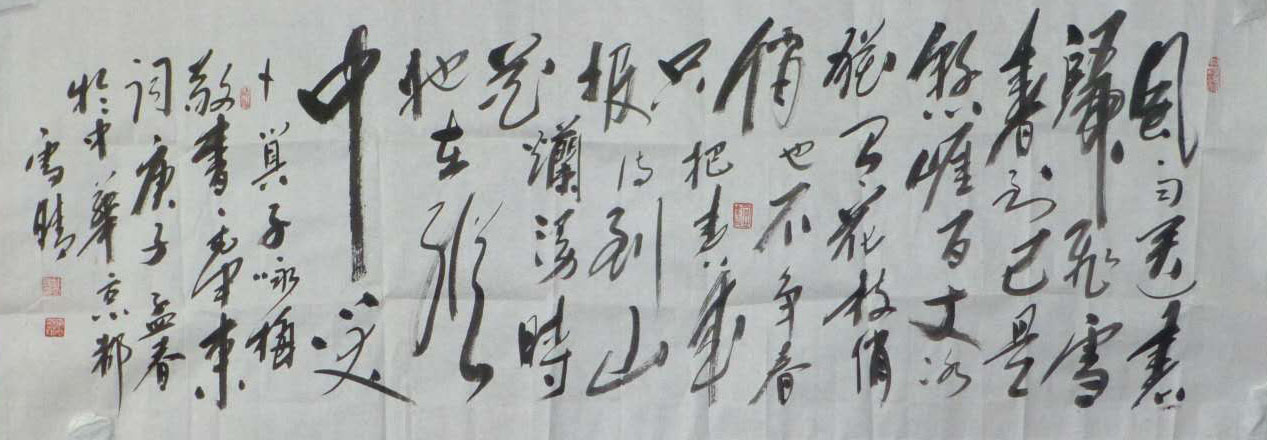 風雨送春
歸飛雪
春到已是
懸崖百丈冰
猶有花枝俏
俏也不争春
只把春来
报待到山
花爛漫時
她在叢
中笑
卜算子咏梅
敬書毛澤東
词庚子孟春
於中華京都
雪晴